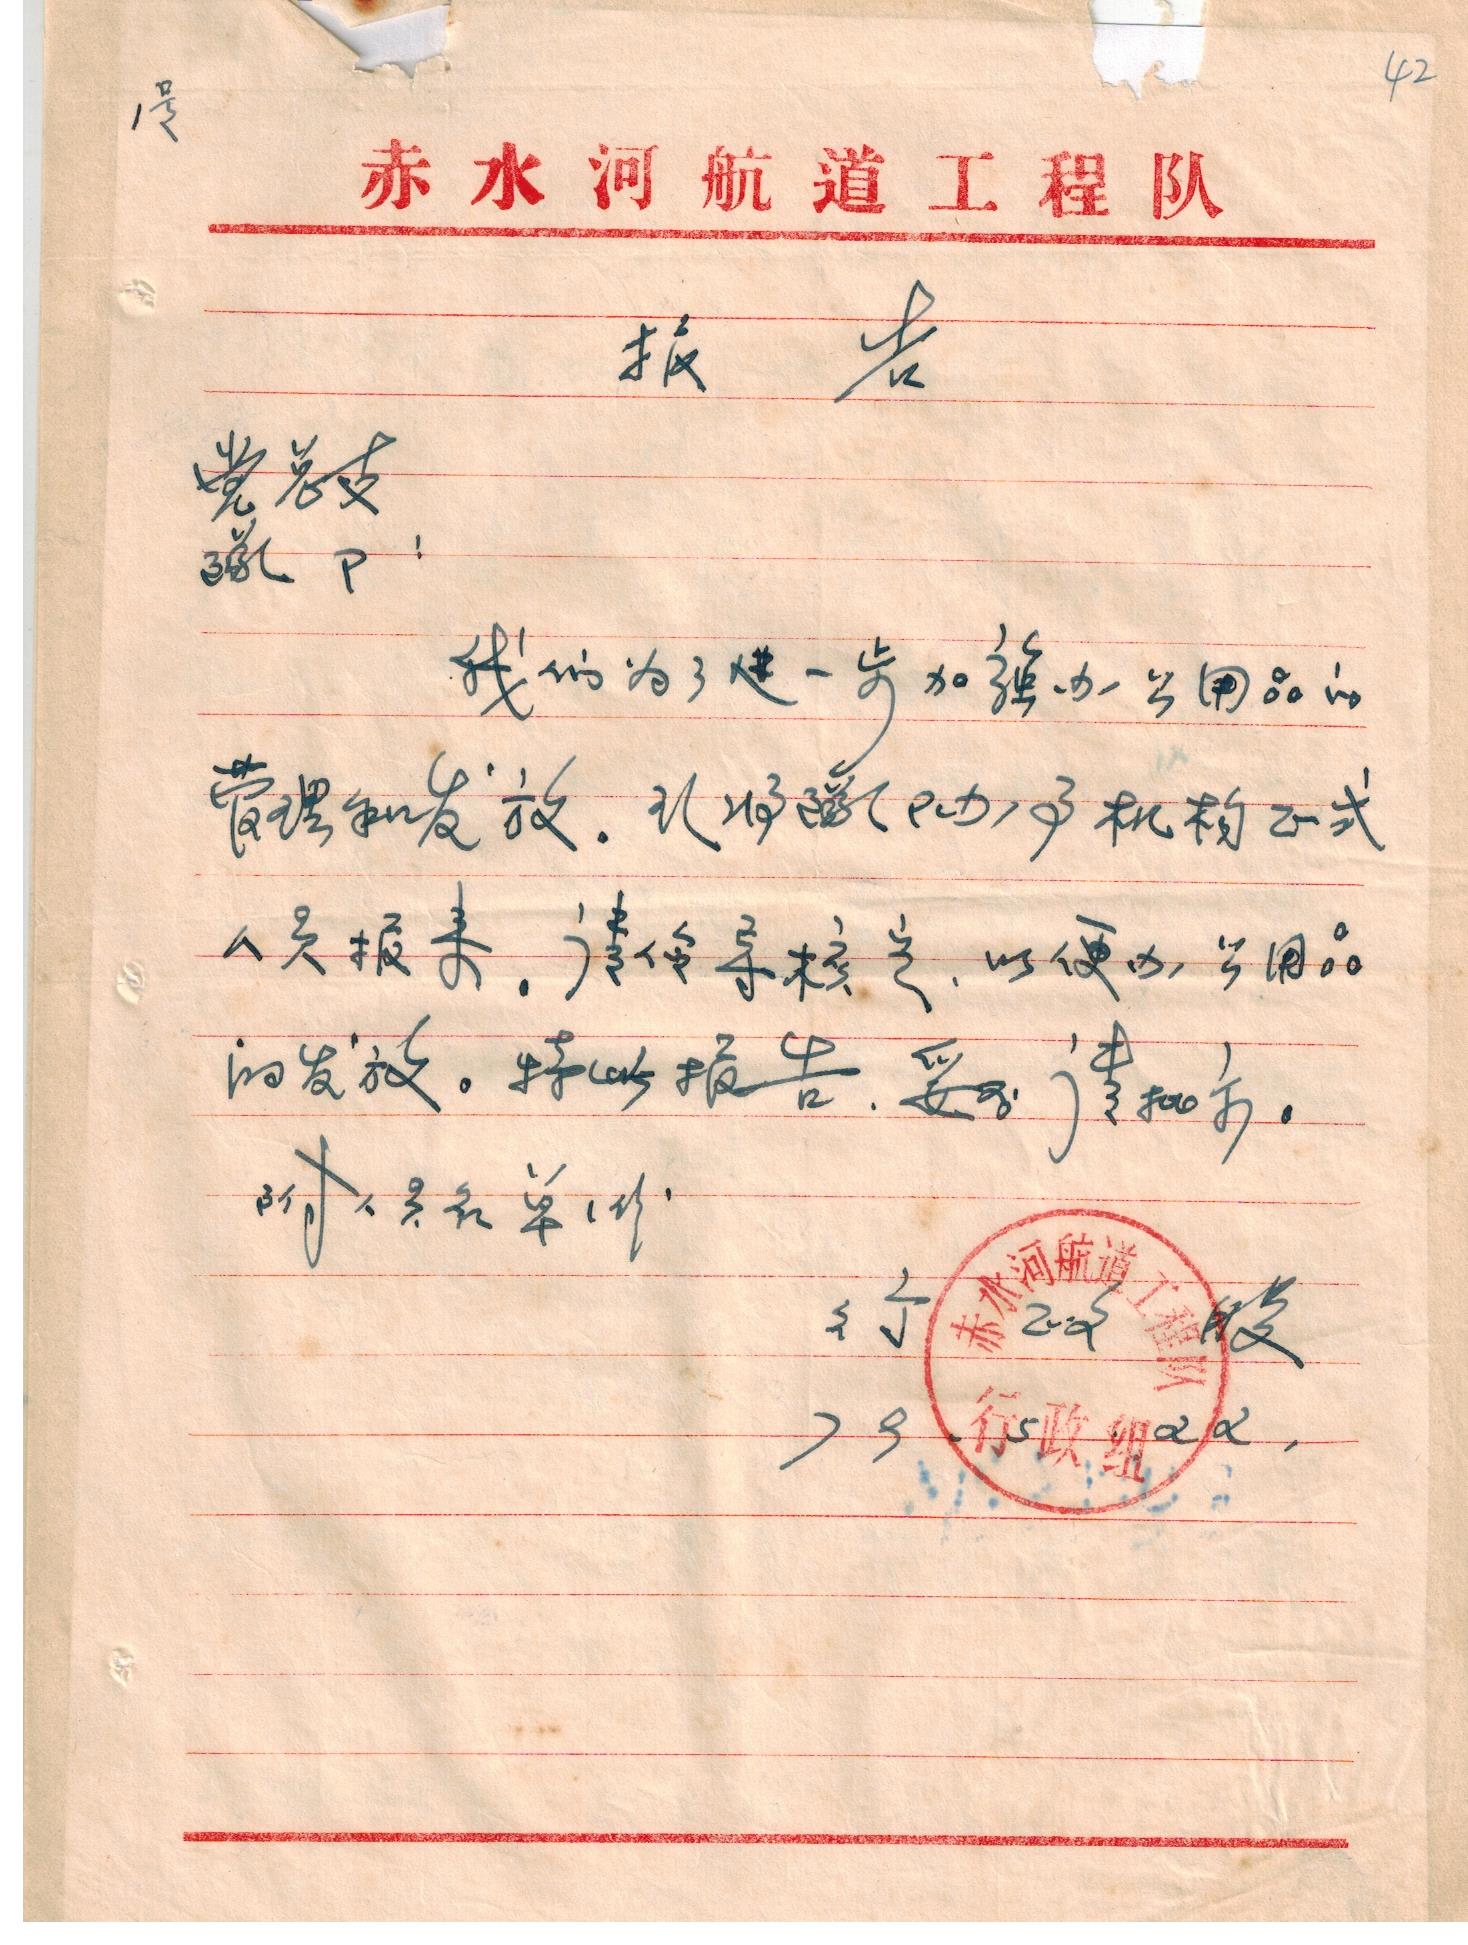 1号
42
赤水河航道工程队
报告
党总支
隊卩:
我们为了进一步加强办公用品的
管理和发放。现将隊卩办事机构正式
人员报来。请领导核定、以便办公用品
的发放。特此报告、妥否请批示。
附人员名单1份
行政股
79.5.22.
赤水河航道工程队
行政组